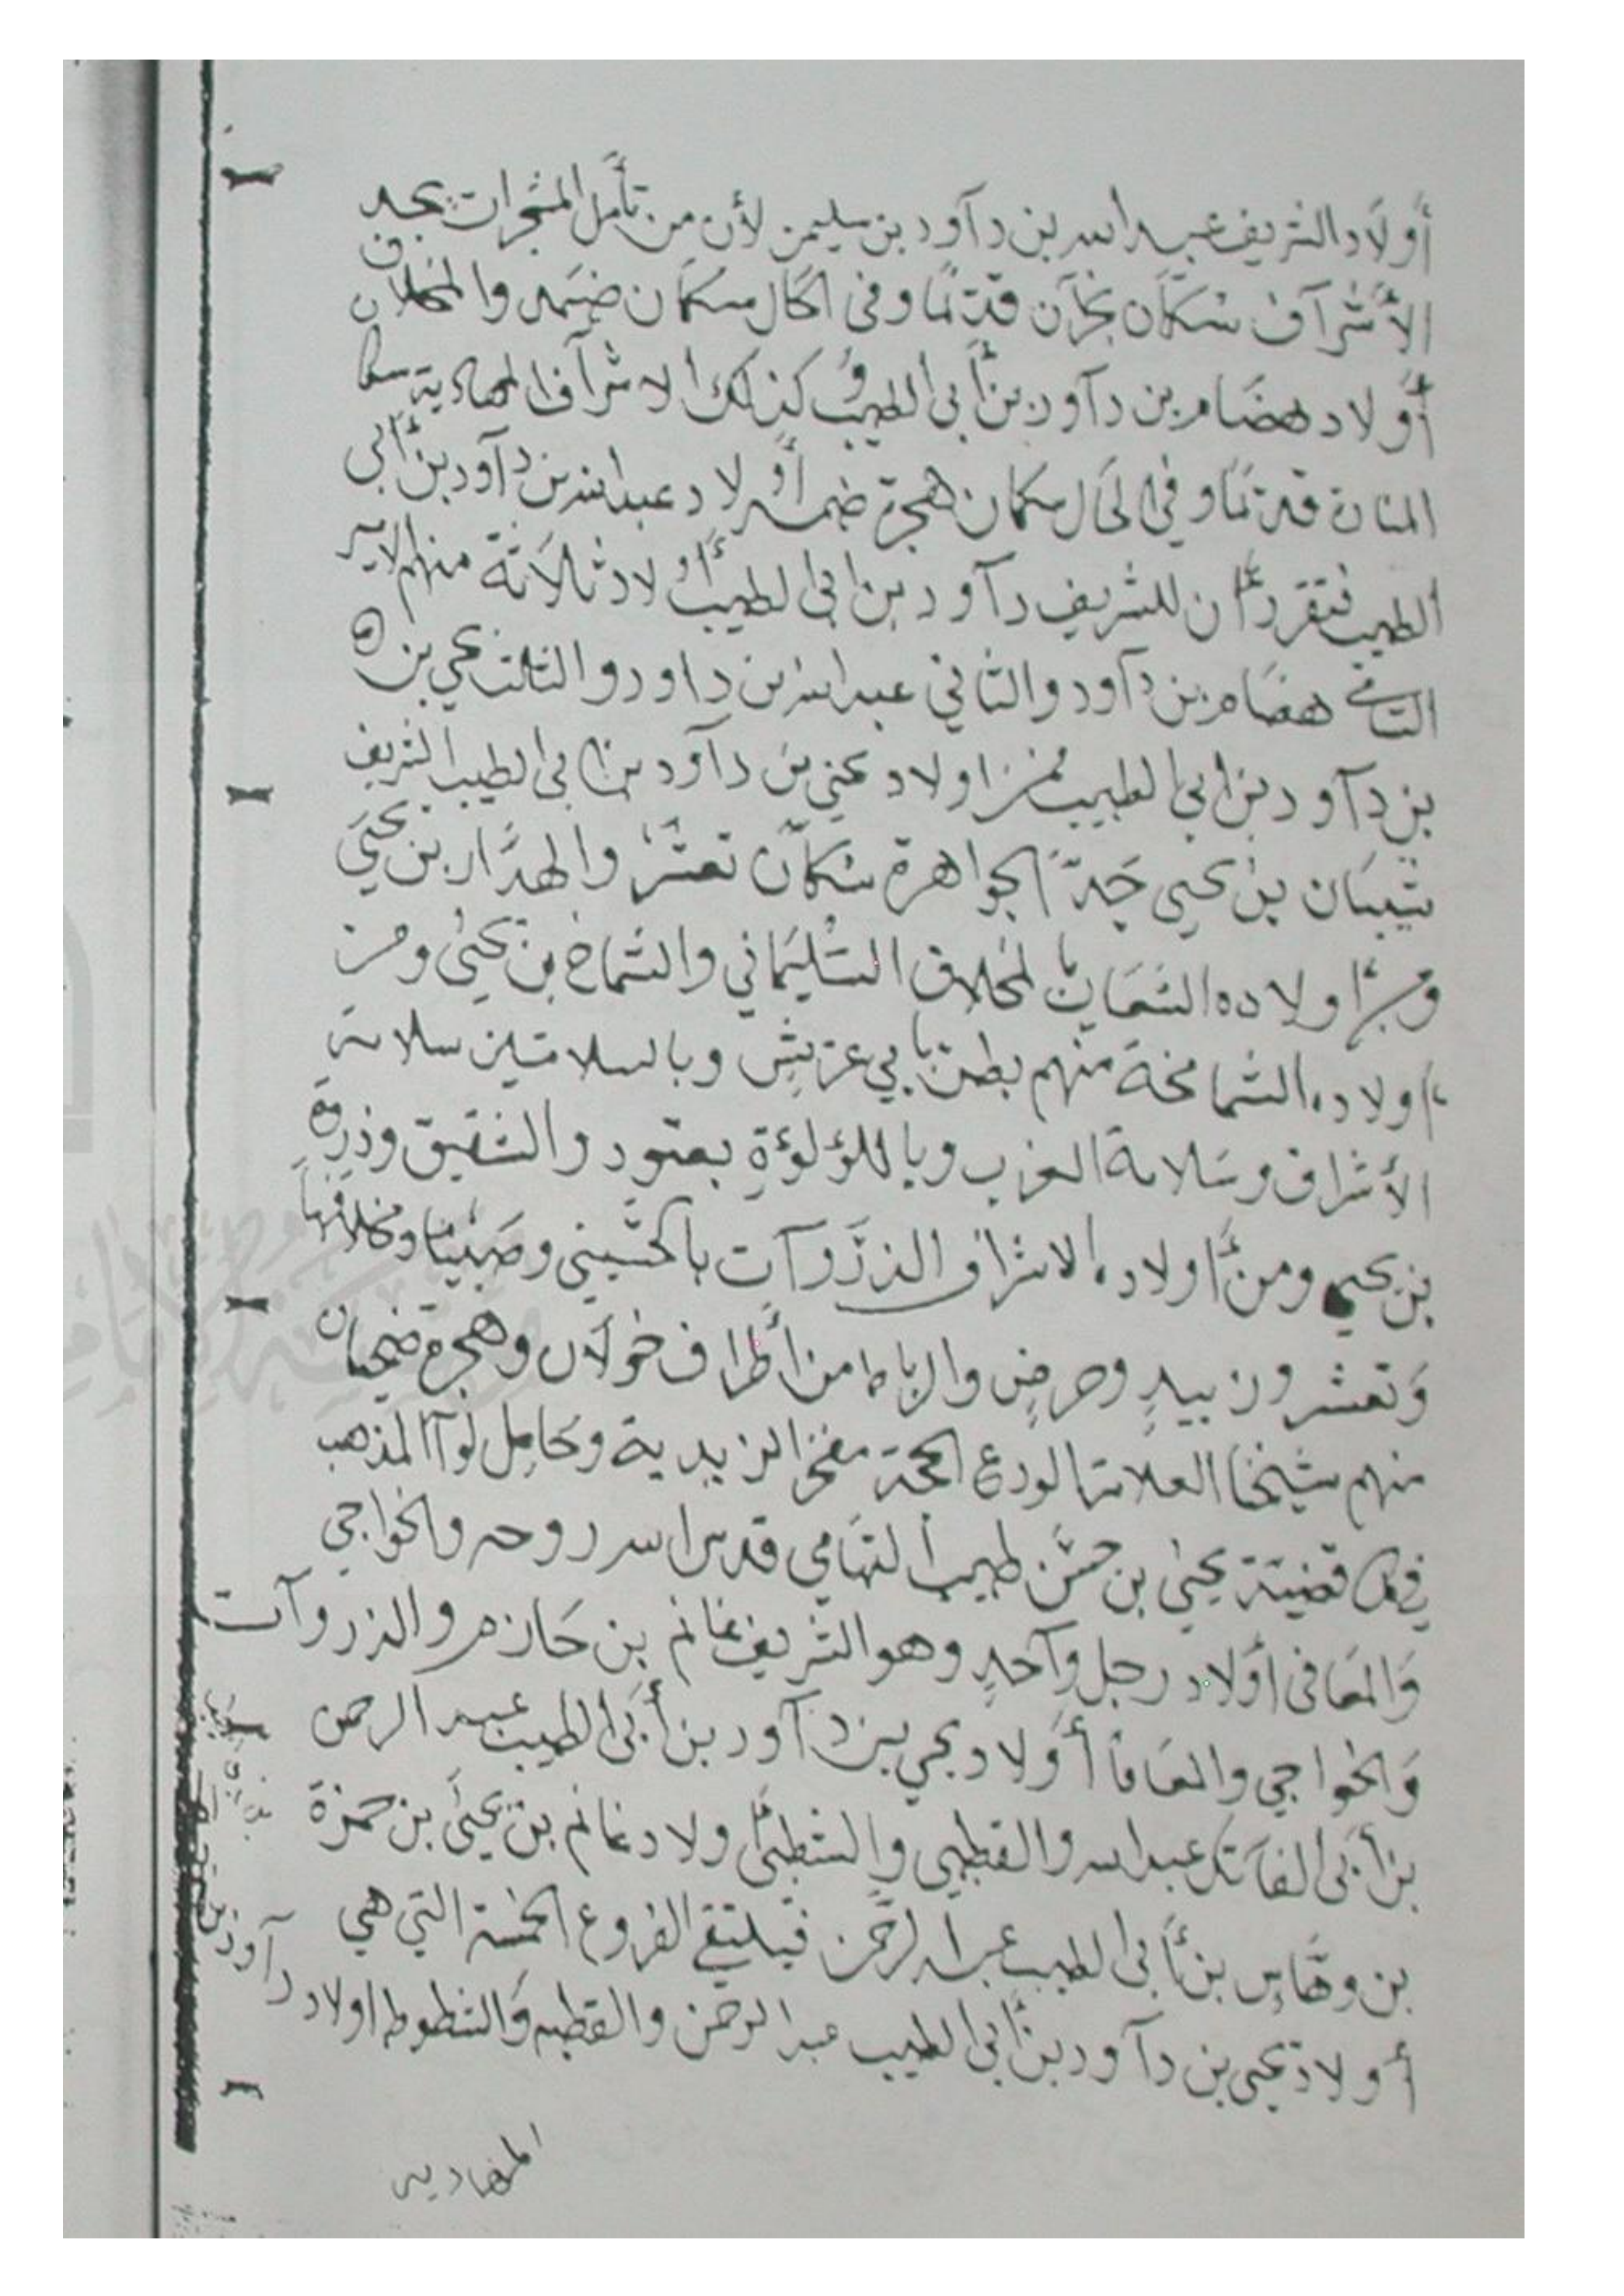 أولاد الشريف عبد الله بن داود بن سليمن لأن من تأمل المشجرات يجد
الأشراف سكان نجران قديمًا وفي الحال سكان ضمد والمخلاف
أولاد هضام بن داود بن أبي الطيب وكذلك الاشراف المهادية سكا
المنارة قديمًا وفي الحال سكان هجرة ضمد أولاد عبد الله بن داود بن أبي
الطيب فتقرر أن للشريف داود بن ابي الطيب أولاد ثلاثة منهم الامير
هضام بن داود والثاني عبد الله بن داود والثالث يحي بن
بن داود بن ابي الطيب فمن اولاد يحي بن داود بن ابي الطيب الشريف
شعبان بن يحيى جدّ الجواهرة سكان تعشر والهدّار بن يحيى
ومن اولاده بالمخلاف السليماني والشماخ بن يحيى ومن
اولاده الشماخة منهم بطن بابي عريش وبالسلامتين سلامة
الأشراف وسلامة العرب وباللؤلؤة بعتود والشقيق وذروة
بن يحيى ومن أولاده الاشراف الذروات بالحسيني وصبيا ومخلافها
وتعشر وزبيد وحرض والرباط من أطراف خولان وهجرة ضحيان
منهم شيخنا العلامة الورع الحجة مفخر الزيدية وحامل لوآ المذهب
في كل قضية يحيى بن حسن طيب التهامي قدس الله روحه والخواجي
والمعافى أولاد رجل واحدٍ وهو الشريف غانم بن حازم والذروات
والخواجي والمعافا أولاد يحي بن داود بن أبي الطيب عبد الرحمن
بن أبي الفاتك عبد الله والقطبي والشطبي اولاد غانم بن يحيى بن حمزة
بن وهاس بن أبي الطيب عبد الرحمن فيلتقي الفروع الخمسة التي هي
أولاد يحيى بن داود بن أبي الطيب عبد الرحمن والقطبه والشطوط اولاد داود بن
المهاديه